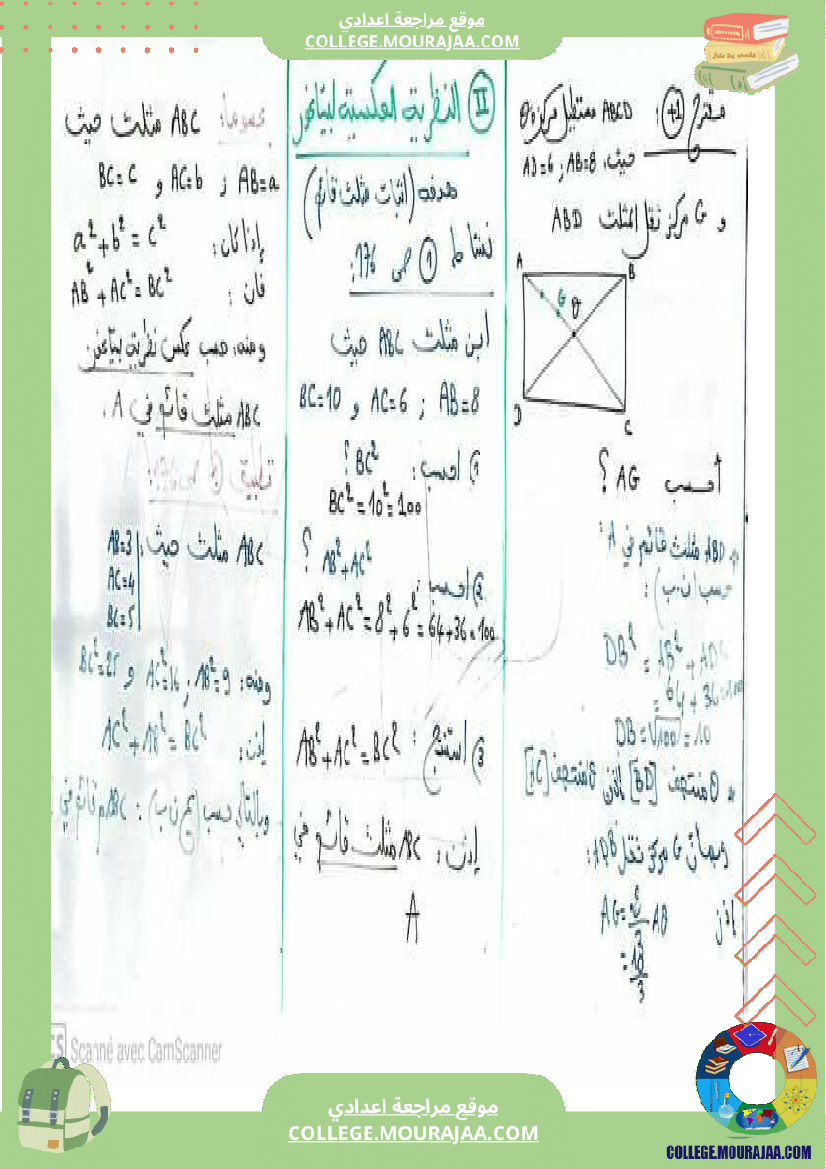 موقع مراجعة اعدادي
COLLEGE.MOURAJAA.COM
مقترح +1: ABCD مستطيل مركزه O
حيث AB=8 ; AD=6
و G مركز ثقل المثلث ABD
A
B
G
O
D
C
أحسب AG ؟
* ABD مثلث قائم في A :
حسب (ن.ب) :
DB² = AB² + AD²
= 64 + 36 = 100
DB = √100 = 10
* O منتصف [BD] إذن O منتصف [AC]
وبما أن G مركز ثقل ADB :
إذن AG = 2/3 AO
= 10/3
II النظرية العكسية لبيتاغور
هدفه (اثبات مثلث قائم)
نشاط 1 ص 176 :
ابن مثلث ABC حيث
AB=8 ; AC=6 و BC=10
1) احسب : BC² ؟
BC² = 10² = 100
2) احسب : AB² + AC² ؟
AB² + AC² = 8² + 6² = 64 + 36 = 100
3) استنتج : AB² + AC² = BC²
إذن : ABC مثلث قائم في
A
عموما : ABC مثلث حيث
AB=a ; AC=b و BC=c
إذا كان : a² + b² = c²
فان : AB² + AC² = BC²
ومنه حسب عكس نظرية بيتاغور
ABC مثلث قائم في A .
تطبيق ص 176 :
ABC مثلث حيث :
AB=3
AC=4
BC=5
ومنه : AB²=9 ; AC²=16 و BC²=25
إذن : AC² + AB² = BC²
وبالتالي حسب : ABC م قائم في
CS Scanné avec CamScanner
موقع مراجعة اعدادي
COLLEGE.MOURAJAA.COM
COLLEGE.MOURAJAA.COM